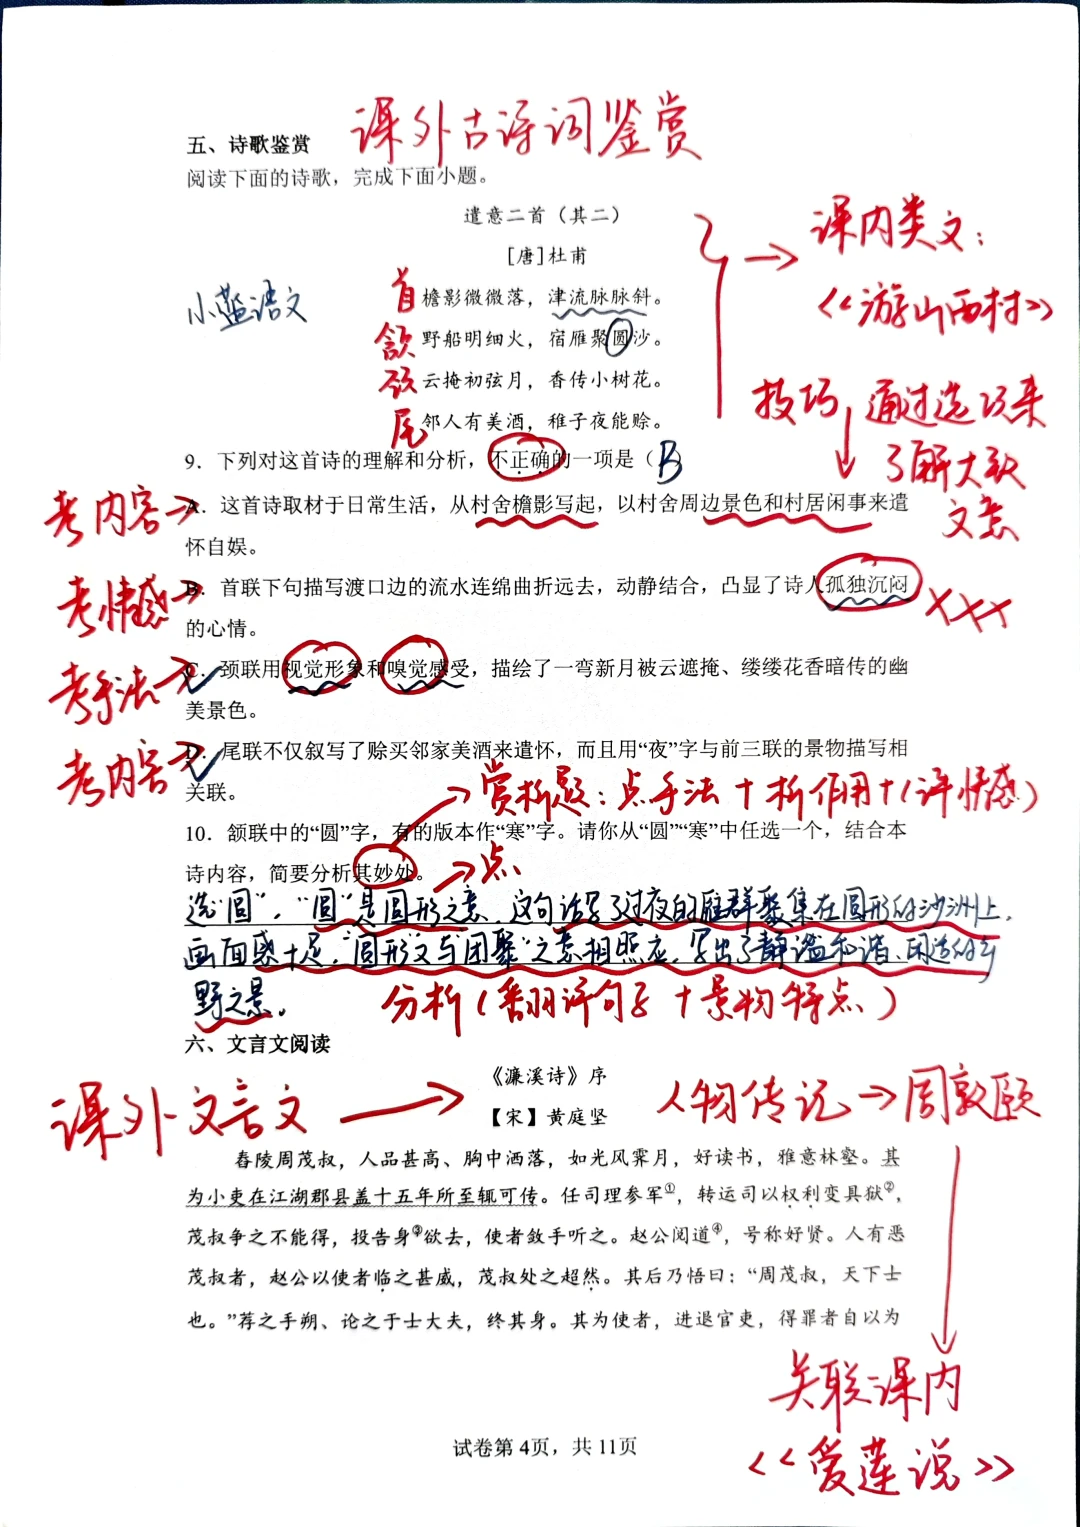 五、诗歌鉴赏 课外古诗词鉴赏
阅读下面的诗歌，完成下面小题。
遣意二首（其二）
[唐]杜甫
课内类文：
《游山西村》
小蓝语文
首 檐影微微落，津流脉脉斜。
颔 野船明细火，宿雁聚圆沙。
颈 云掩初弦月，香传小树花。
尾 邻人有美酒，稚子夜能赊。
技巧 通过选项来
了解大致
文意
9．下列对这首诗的理解和分析，不正确的一项是（B
考内容→
A．这首诗取材于日常生活，从村舍檐影写起，以村舍周边景色和村居闲事来遣
怀自娱。
考情感→
B．首联下句描写渡口边的流水连绵曲折远去，动静结合，凸显了诗人孤独沉闷 ×××
的心情。
考手法→
C．颈联用视觉形象和嗅觉感受，描绘了一弯新月被云遮掩、缕缕花香暗传的幽
美景色。
考内容→
D．尾联不仅叙写了赊买邻家美酒来遣怀，而且用“夜”字与前三联的景物描写相
关联。
→赏析题：点手法＋析作用＋（评情感）
10．颔联中的“圆”字，有的版本作“寒”字。请你从“圆”“寒”中任选一个，结合本
诗内容，简要分析其妙处。 →点
选“圆”，“圆”是圆形之意，这句话写了过夜的雁群聚集在圆形的沙洲上，
画面感十足，“圆形”又与“团聚”之意相照应，写出了静谧和谐、闲适的乡
野之景。
分析（翻译句子＋景物特点）
六、文言文阅读
《濂溪诗》序
【宋】黄庭坚
课外文言文→
人物传记→周敦颐
舂陵周茂叔，人品甚高、胸中洒落，如光风霁月，好读书，雅意林壑。其
为小吏在江湖郡县盖十五年所至辄可传。任司理参军①，转运司以权利变具狱②，
茂叔争之不能得，投告身③欲去，使者敛手听之。赵公阅道④，号称好贤。人有恶
茂叔者，赵公以使者临之甚威，茂叔处之超然。其后乃悟曰：“周茂叔，天下士
也。”荐之于朔、论之于士大夫，终其身。其为使者，进退官吏，得罪者自以为
关联课内
《爱莲说》
试卷第 4页，共 11页